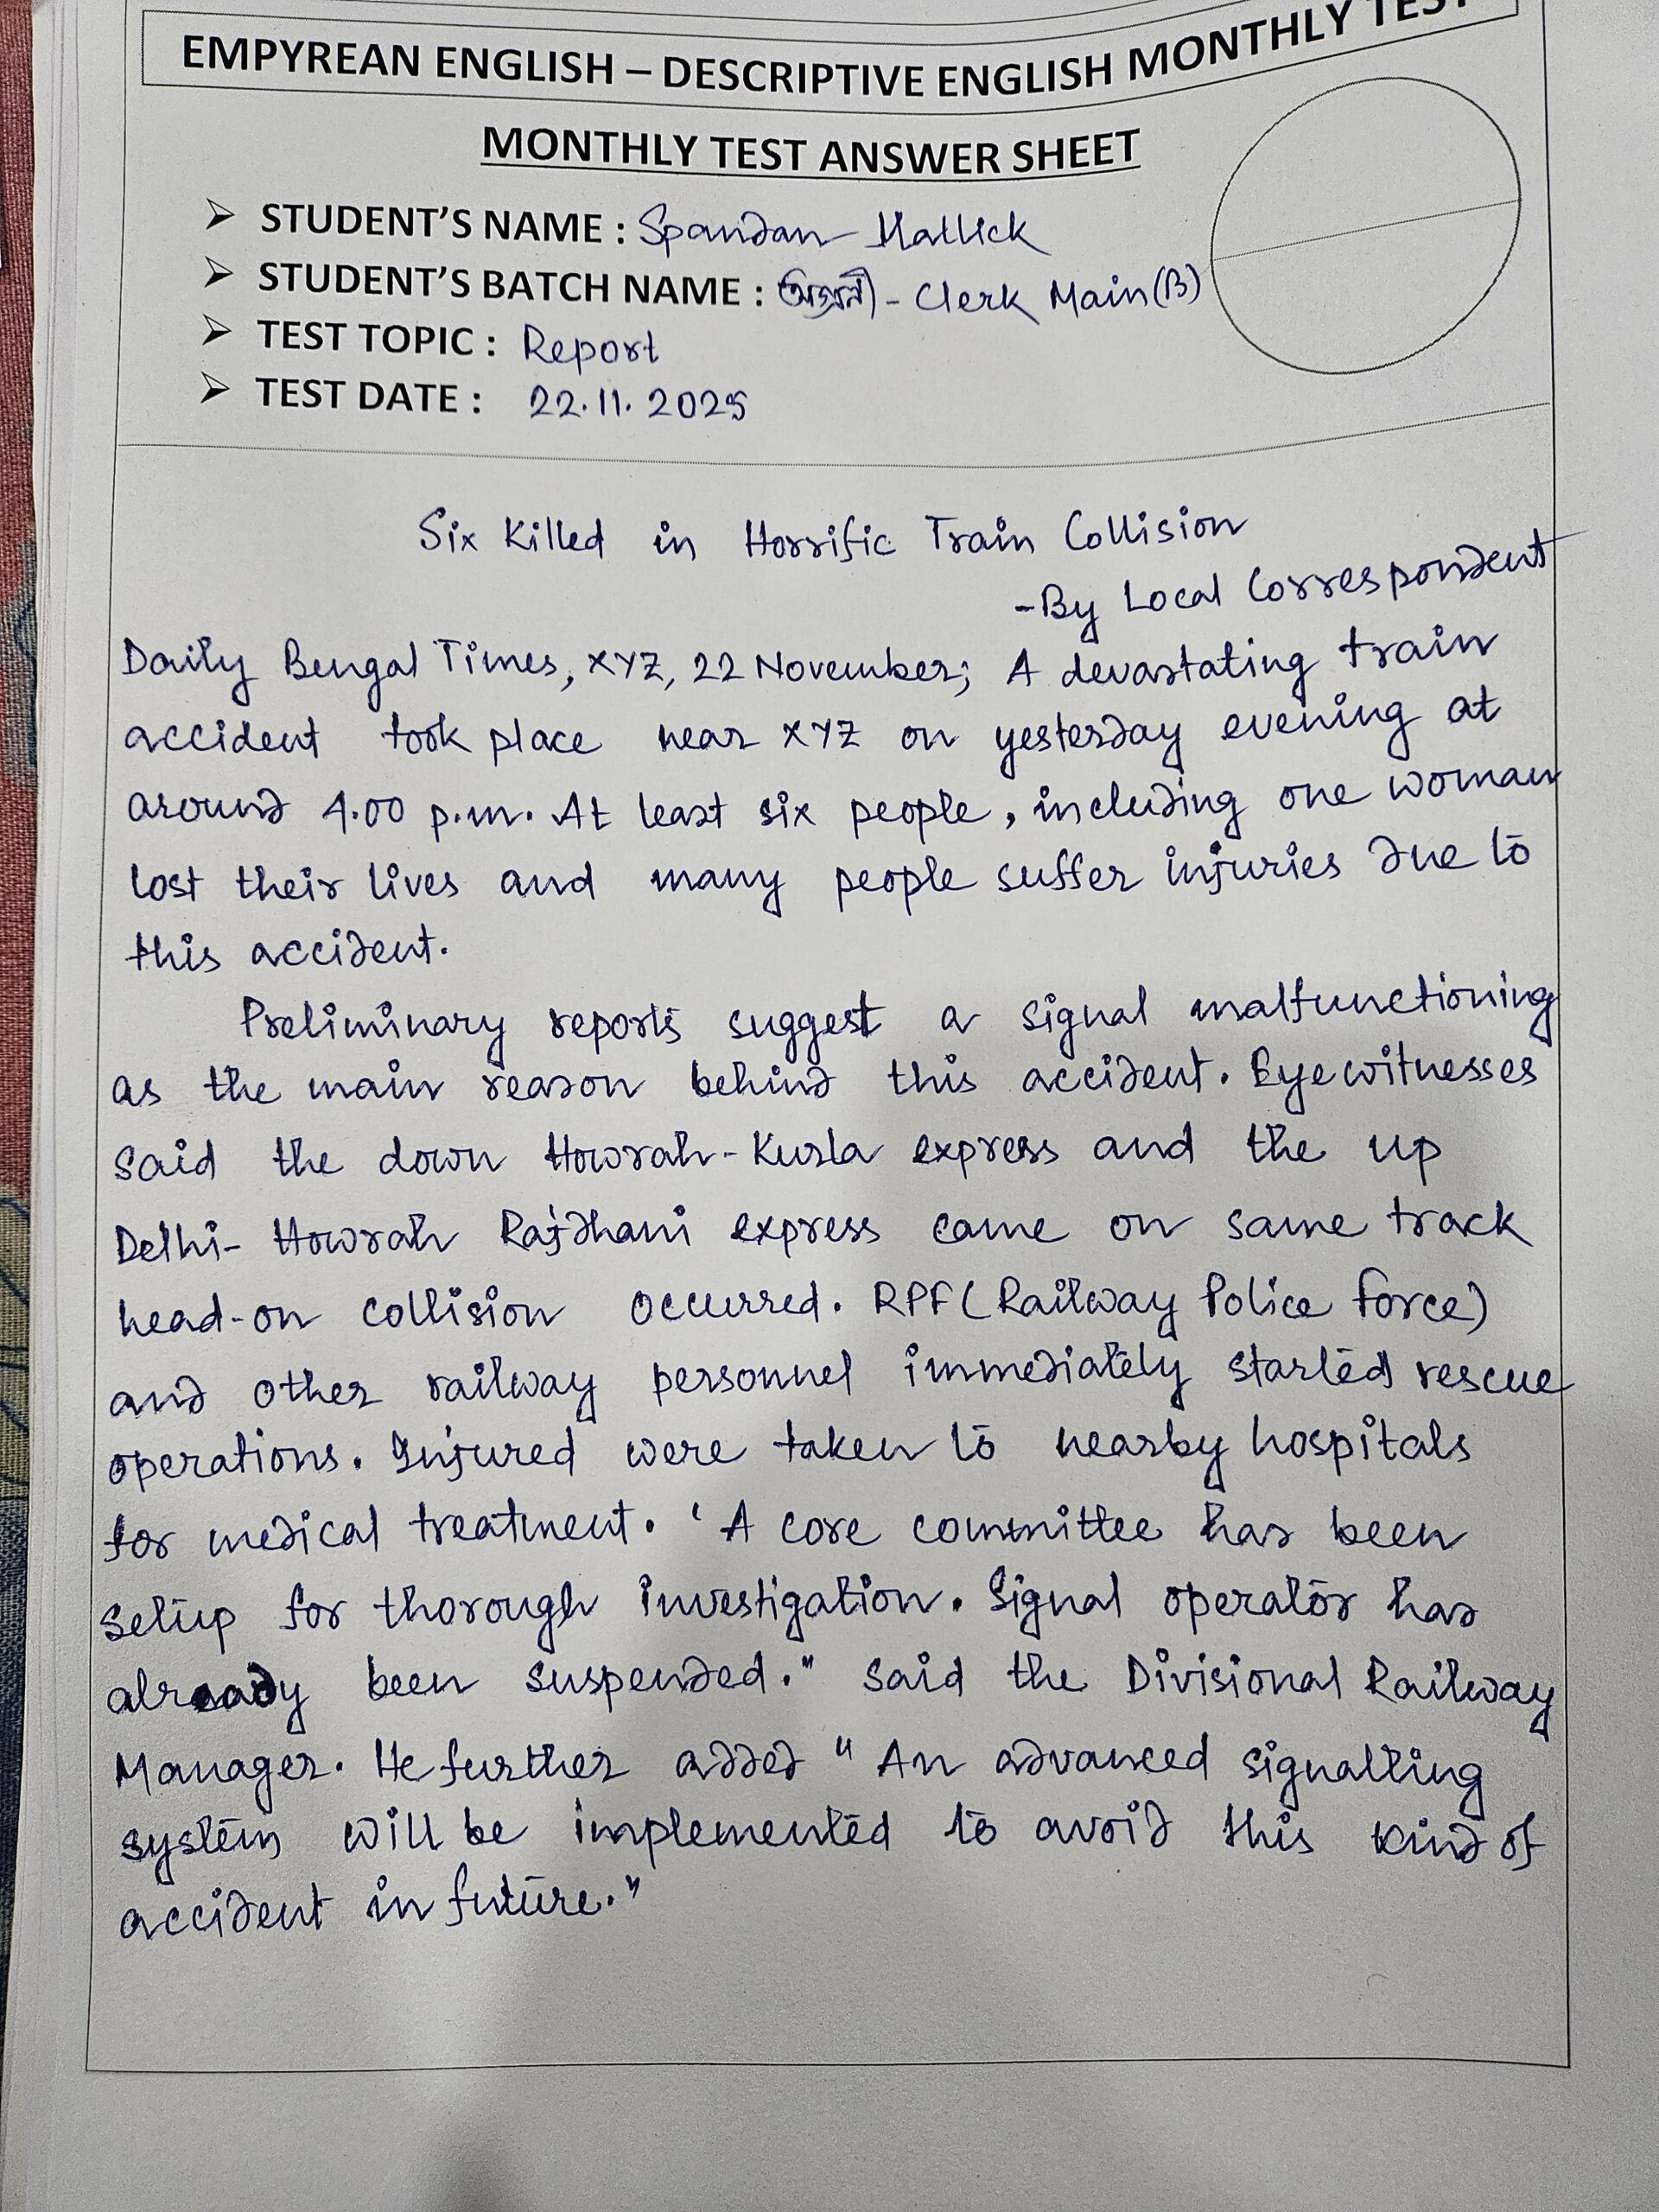 EMPYREAN ENGLISH – DESCRIPTIVE ENGLISH MONTHLY TEST
MONTHLY TEST ANSWER SHEET
➢ STUDENT'S NAME : Spandan Mallick
➢ STUDENT'S BATCH NAME : অগ্রণী - Clerk Main (B)
➢ TEST TOPIC : Report
➢ TEST DATE : 22.11.2025
Six Killed in Horrific Train Collision
-By Local Correspondent
Daily Bengal Times, XYZ, 22 November; A devastating train
accident took place near XYZ on yesterday evening at
around 4.00 p.m. At least six people, including one woman
lost their lives and many people suffer injuries due to
this accident.
Preliminary reports suggest a signal malfunctioning
as the main reason behind this accident. Eyewitnesses
said the down Howrah-Kurla express and the up
Delhi-Howrah Rajdhani express came on same track
head-on collision occurred. RPF (Railway Police Force)
and other railway personnel immediately started rescue
operations. Injured were taken to nearby hospitals
for medical treatment. ‘A core committee has been
setup for thorough investigation. Signal operator has
already been suspended." said the Divisional Railway
Manager. He further added "An advanced signalling
system will be implemented to avoid this kind of
accident in future."